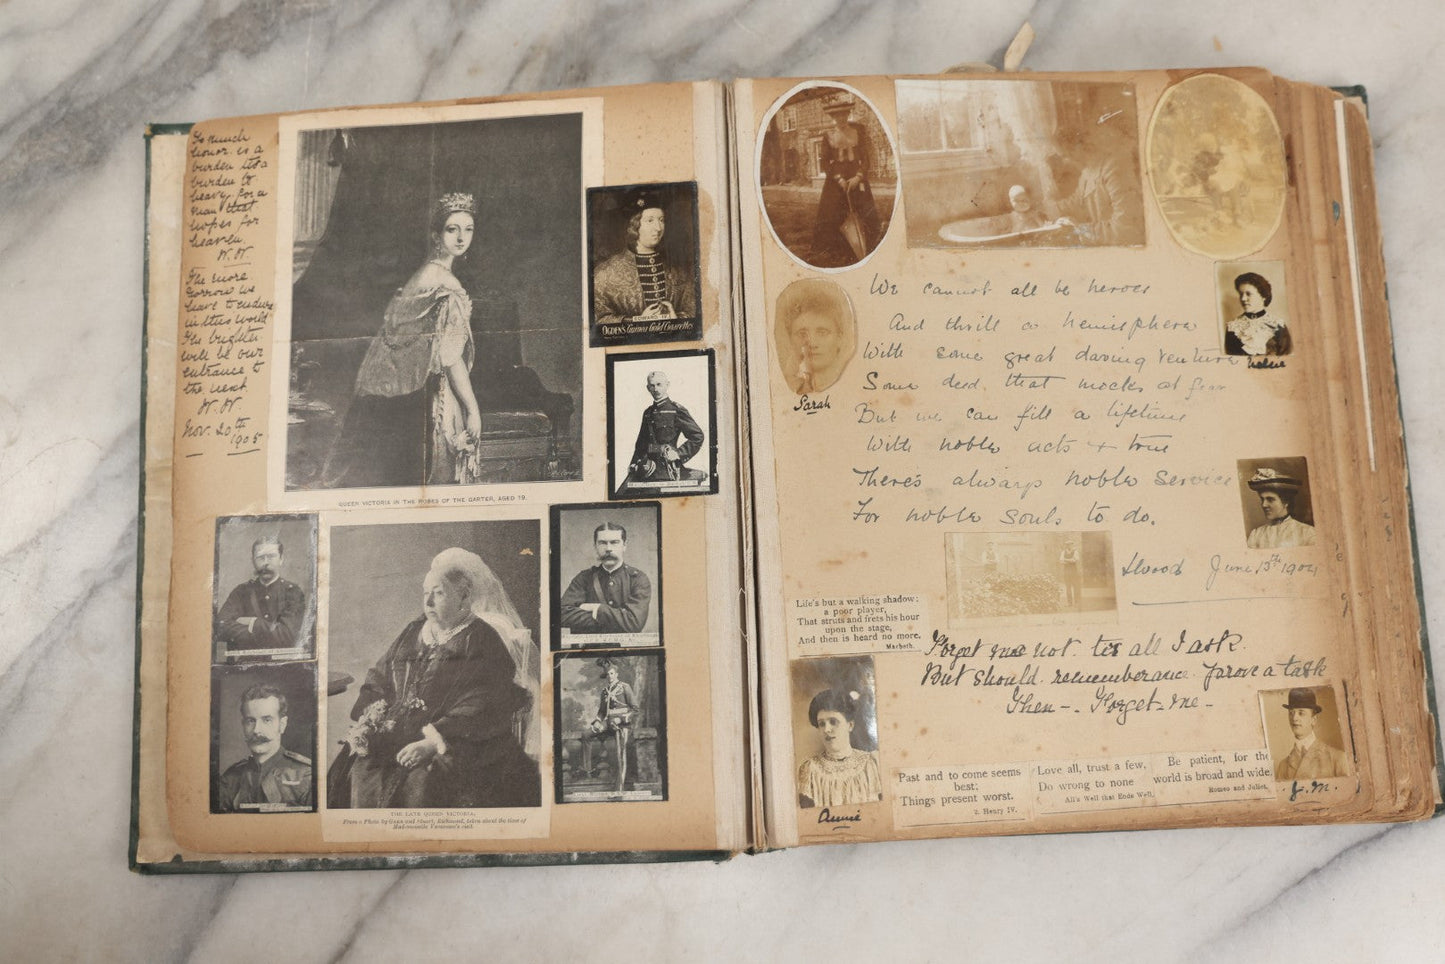 So much
honor is a
burden tis a
burden to
heavy for a
man that
hopes for
heaven
W. W.
The more
sorrow we
have to endure
in this world
The brighter
will be our
entrance to
the next
W. W.
Nov. 20th
1905
QUEEN VICTORIA IN THE ROBES OF THE GARTER, AGED 19.
EDWARD IV.
OGDEN'S Guinea Gold Cigarettes
THE LATE QUEEN VICTORIA,
From a Photo by GABB and Stuart, Richmond, taken about the time of
Mademoiselle Vacaresco's visit.
We cannot all be heroes
And thrill a hemisphere
With some great daring venture
Some deed that mocks at fear
But we can fill a lifetime
With noble acts + true
There's always noble service
For noble souls to do.
June 13th 1904
Sarah
Life's but a walking shadow;
a poor player,
That struts and frets his hour
upon the stage,
And then is heard no more.
Macbeth.
Forget me not tis all I ask
But should remembrance prove a task
Then -. Forget-me-
Annie
Past and to come seems
best;
Things present worst.
2. Henry IV.
Love all, trust a few,
Do wrong to none
All's Well that Ends Well.
Be patient, for the
world is broad and wide.
Romeo and Juliet.
J. M.